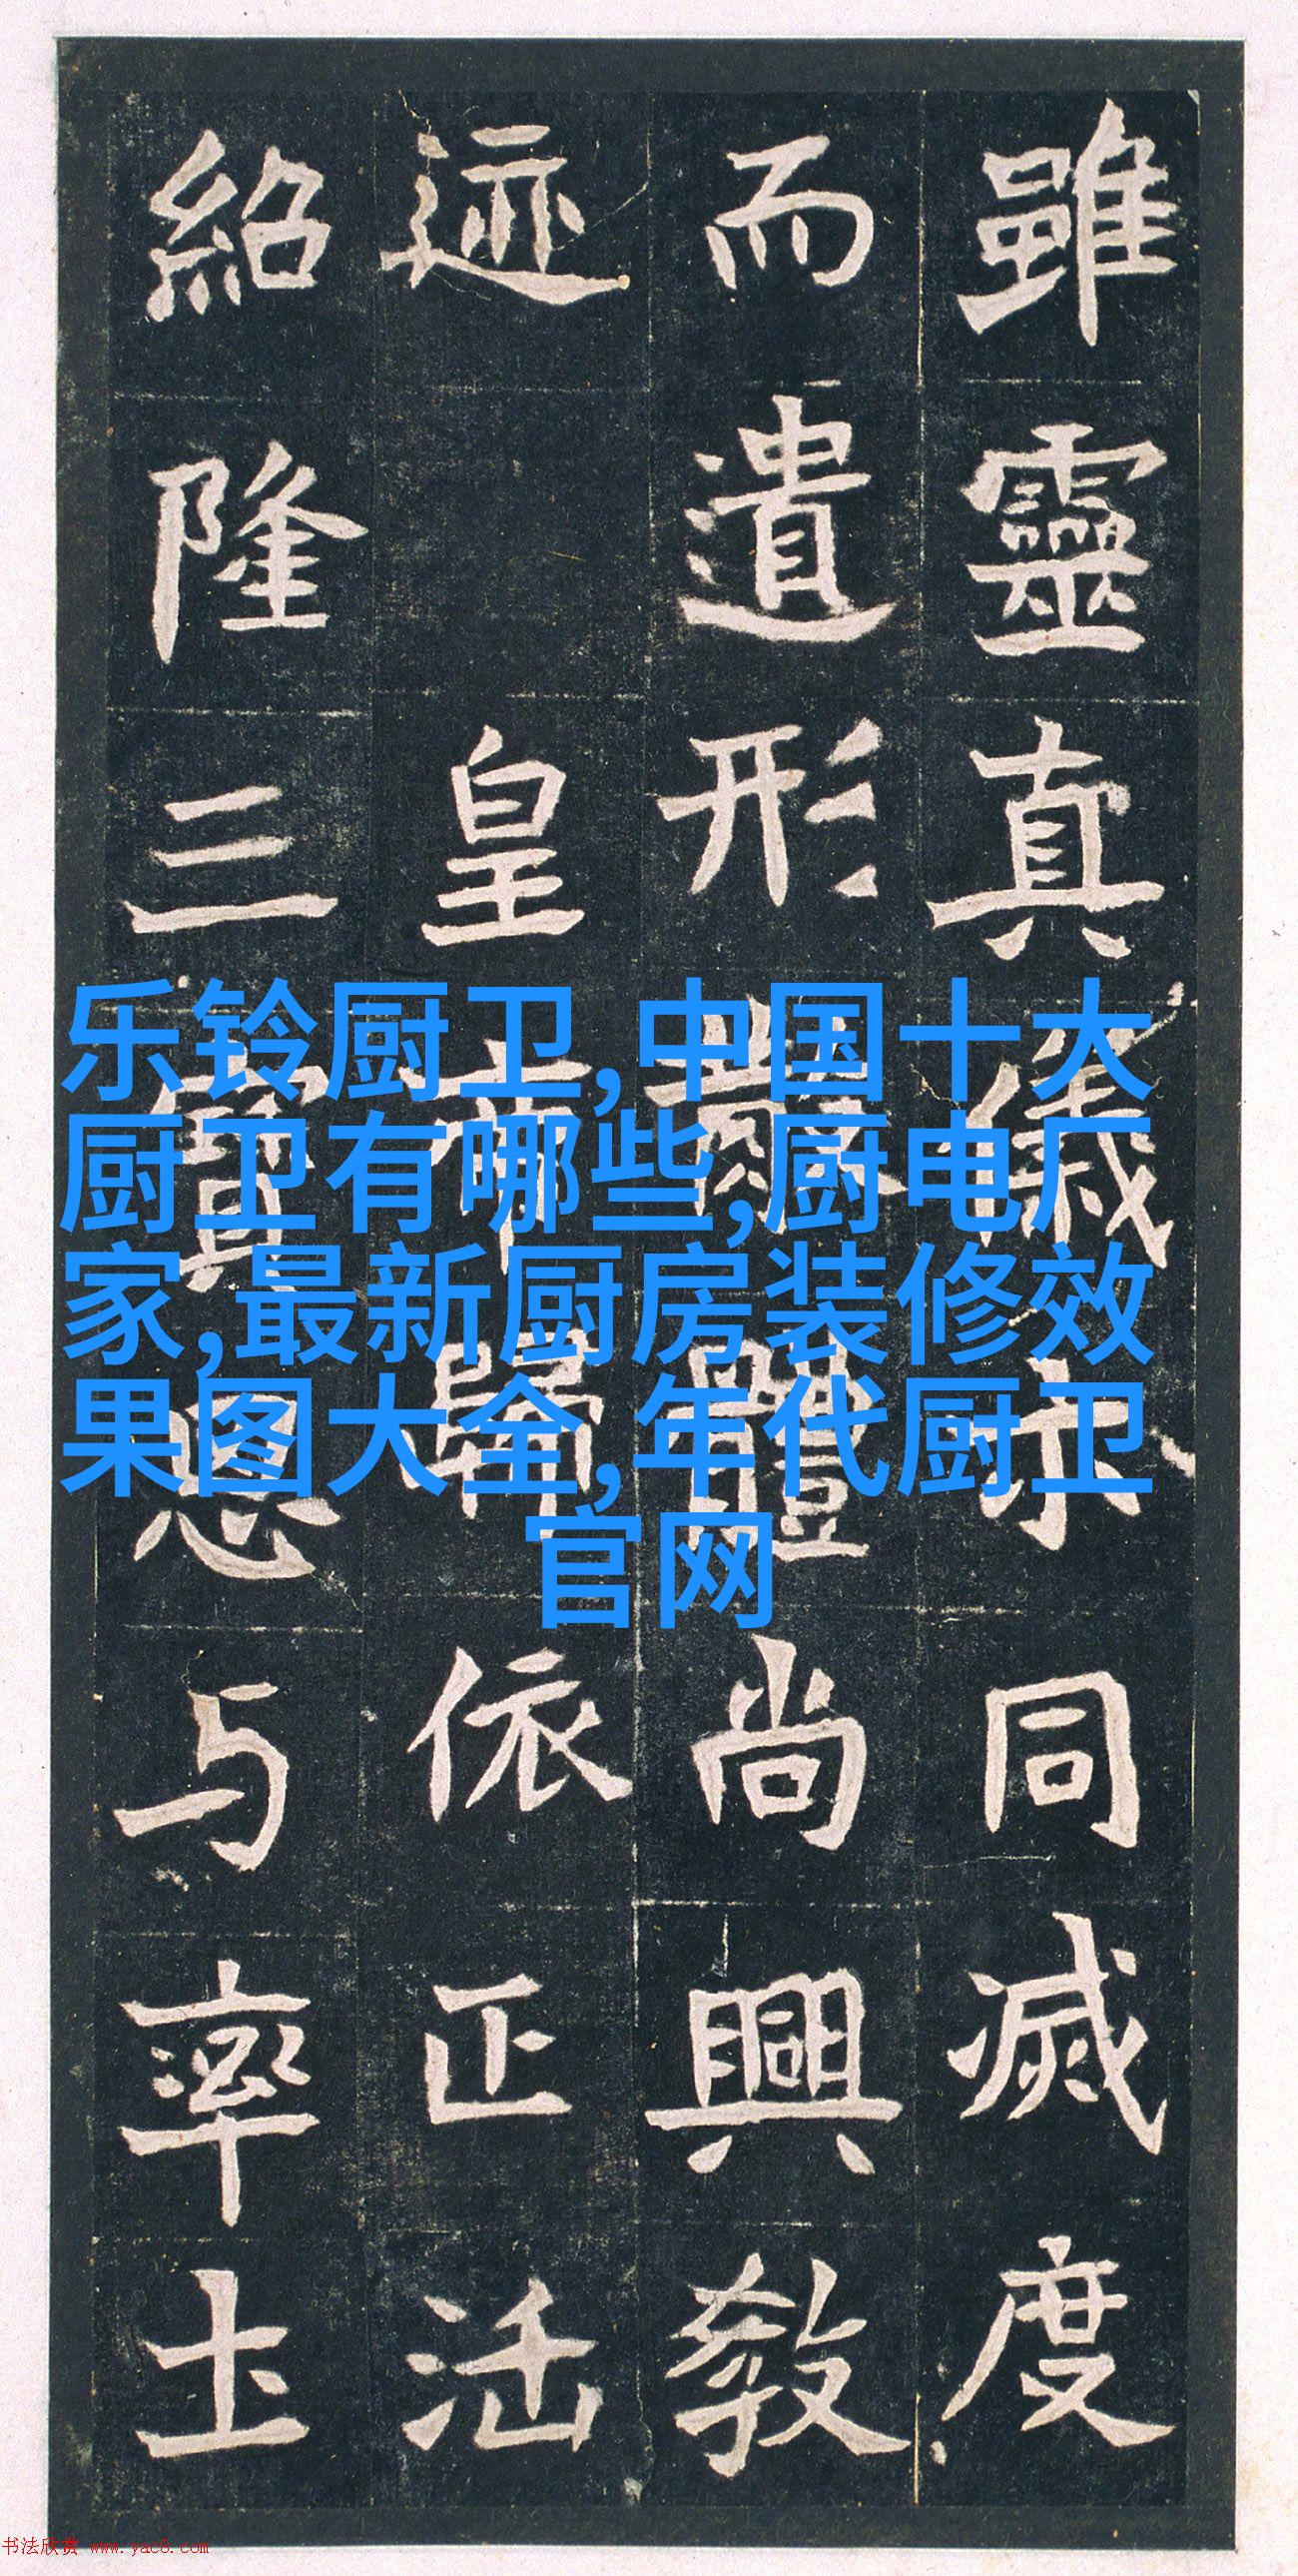 雖靈真儀示同滅度
而遺形散體尚興教
迹 皇帝歸依正法
紹隆三寳思与率圡
乐铃厨卫,中国十大
厨卫有哪些,厨电厂
家,最新厨房装修效
果图大全,年代厨卫
官网
书法欣赏 www.yac8.com